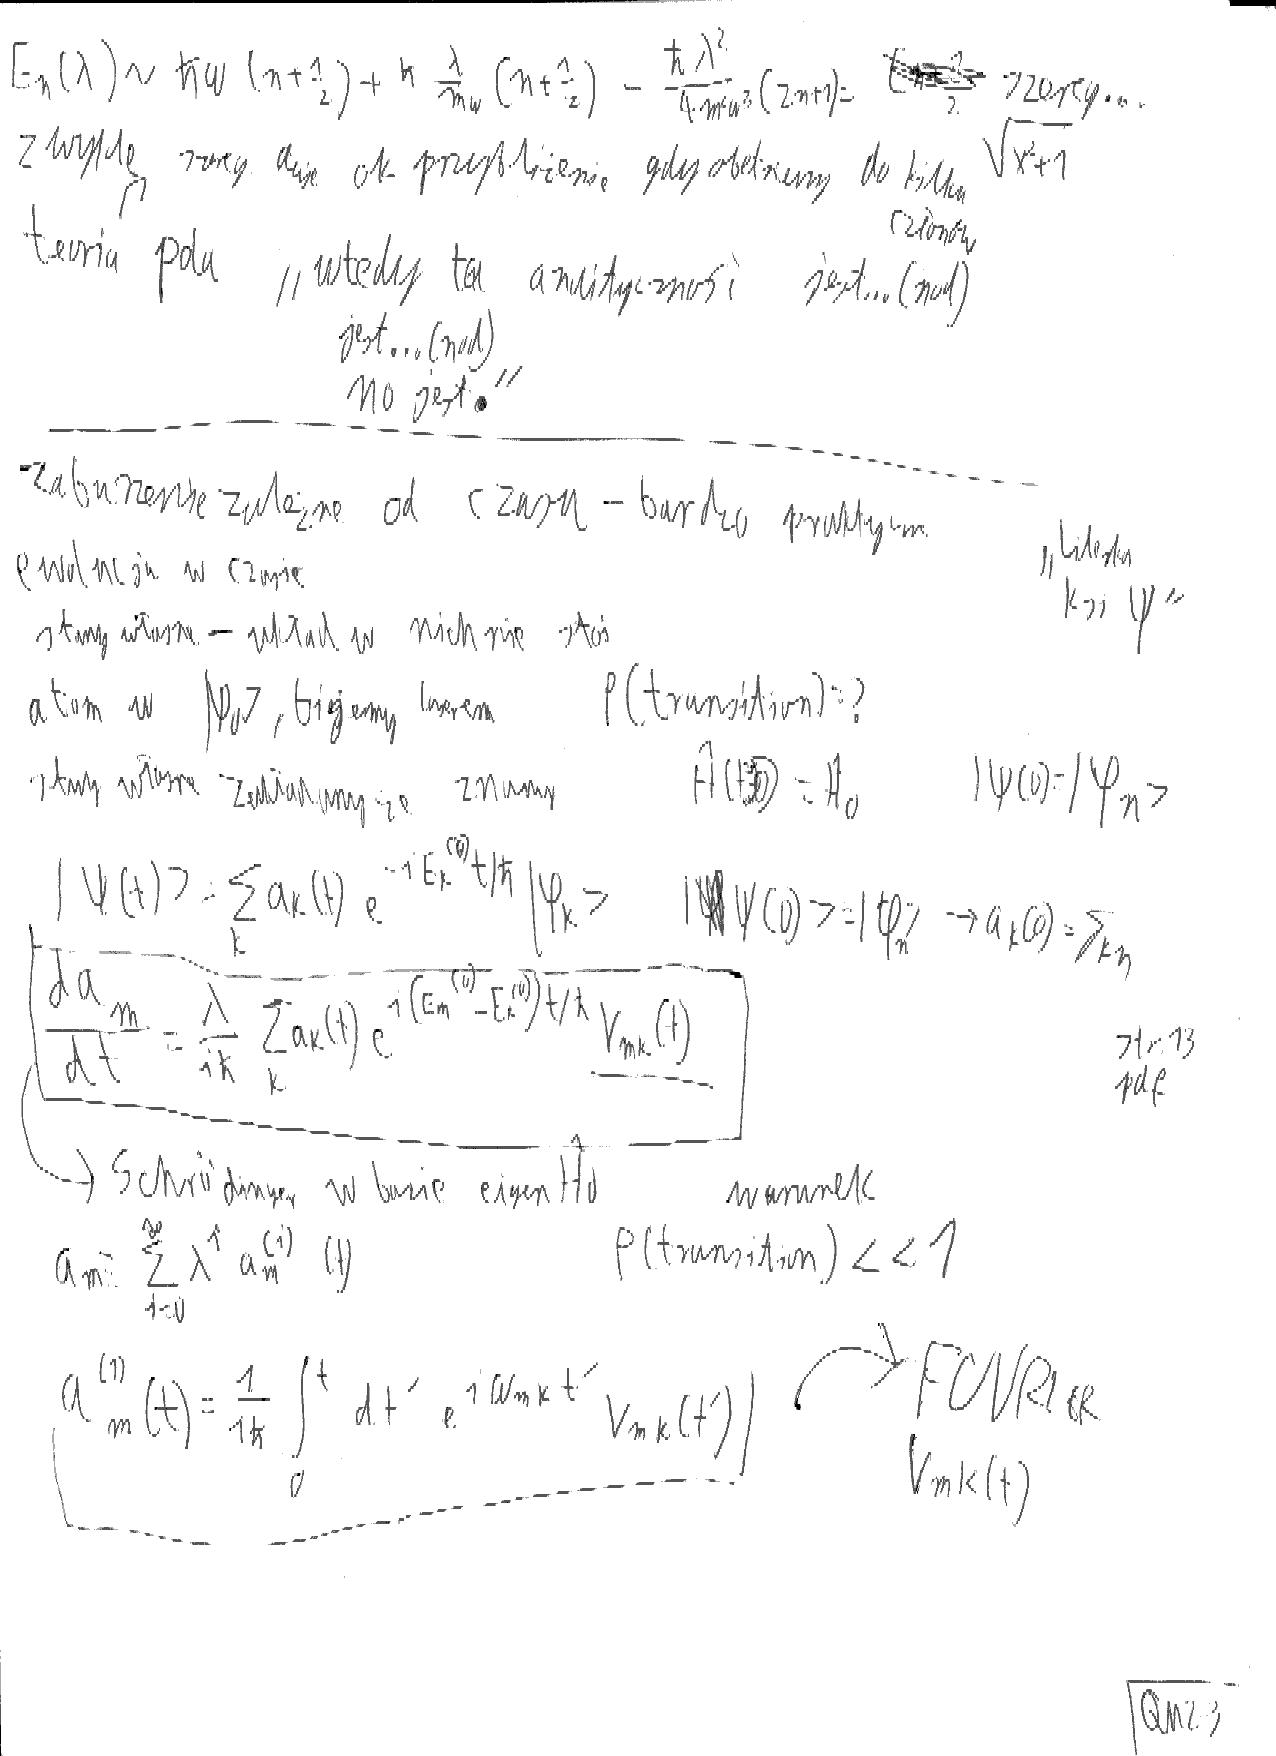 E_n(λ) ~ ħω (n+1/2) + ħ λ/mω (n+1/2) - ħλ²/4m²ω³ (2n+1) = szereg...
zwykle szereg daje ok przybliżenie gdy obetniemy do kilku członów √x²+1
teoria pola „wtedy ta analityczność jest...(nod)
jest...(nod)
no jest."
-zaburzenie zależne od czasu - bardzo praktyczn.
ewolucja w czasie
„literka ksi ψ"
stany własne - układ w nich nie stoi
atom w |φ₀>, bijemy laserem P(transition)=?
stany własne zakładamy że znamy Ĥ(t=0) = Ĥ₀ |ψ(0)=|φ_n>
|ψ(t)> = Σ_k a_k(t) e^{-iE_k^{(0)}t/ħ} |φ_k> |ψ(0)>=|φ_n> → a_k(0)=δ_{kn}
da_m/dt = λ/iħ Σ_k a_k(t) e^{i(E_m^{(0)}-E_k^{(0)})t/ħ} V_{mk}(t)
str. 13
pdf
→ Schrödinger w bazie eigen Ĥ₀ warunek
a_m = Σ_{i=0}^{∞} λ^i a_m^{(i)} (t) P(transition) << 1
a_m^{(1)}(t) = 1/iħ ∫_0^t dt' e^{iω_{mk}t'} V_{mk}(t') → FOURIER
V_{mk}(t)
QM2.3